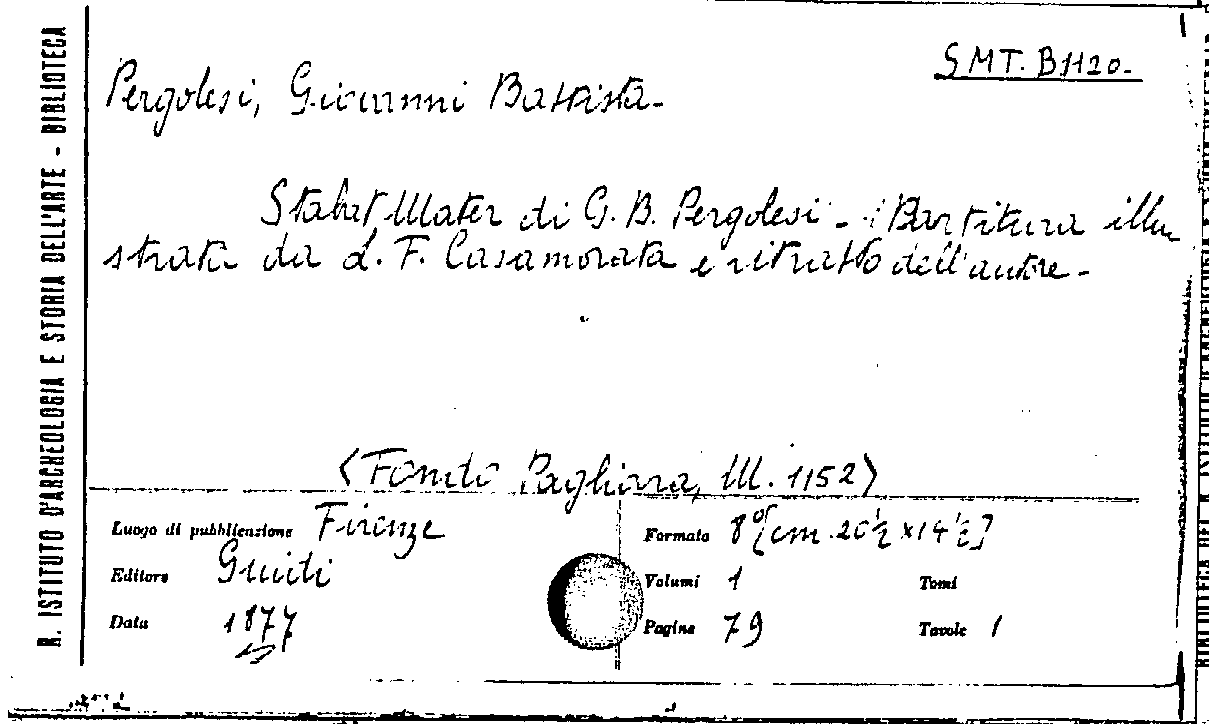 R. ISTITUTO D'ARCHEOLOGIA E STORIA DELL'ARTE - BIBLIOTECA
SMT. B1120.
Pergolesi, Giovanni Battista.
Stabat Mater di G. B. Pergolesi - Partitura illu
strata da L. F. Casamorata e ritratto dell'autore -
<Fondo Pagliara, M. 1152>
Luogo di pubblicazione Firenze
Editore Guidi
Data 1877
Formato 8º[cm. 20½ x 14½]
Volumi 1 Tomi
Pagine 79 Tavole 1